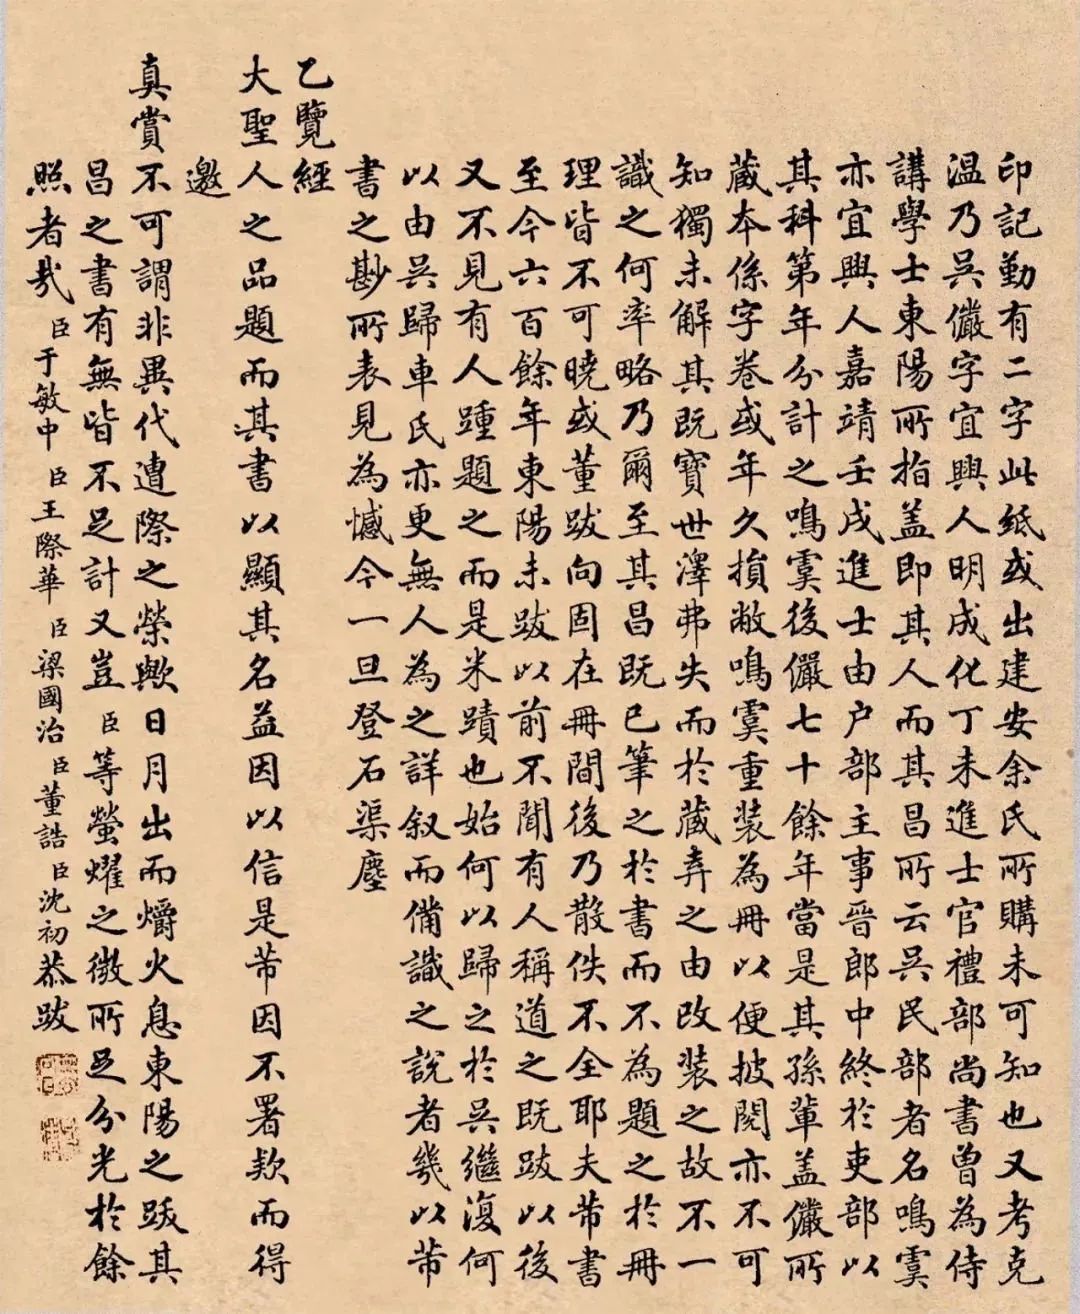 印記勤有二字此紙或出建安余氏所購未可知也又考克
温乃吳儼字宜興人明成化丁未進士官禮部尚書曾為侍
講學士東陽所指盖即其人而其昌所云吳民部者名鳴虞
亦宜興人嘉靖壬戌進士由户部主事晉郎中終於吏部以
其科第年分計之鳴虞後儼七十餘年當是其孫輩盖儼所
藏本係字卷或年久損敝鳴虞重装為冊以便披閱亦不可
知獨未解其既寶世澤弗失而於藏弆之由改装之故不一
識之何率略乃爾至其昌既已筆之於書而不為題之於冊
理皆不可曉或董跋向固在冊間後乃散佚不全耶夫芾書
至今六百餘年東陽未跋以前不聞有人稱道之既跋以後
又不見有人踵題之而是米蹟也始何以歸之於吳繼復何
以由吳歸車氏亦更無人為之詳叙而備識之説者幾以芾
書之尠所表見為憾今一旦登石渠塵
乙覽經
大聖人之品題而其書以顯其名益因以信是芾因不署款而得
邀
真賞不可謂非異代遭際之榮歟日月出而爝火息東陽之跋其
昌之書有無皆不足計又豈臣等螢燿之微所足分光於餘
照者哉臣于敏中臣王際華臣梁國治臣董誥臣沈初恭跋